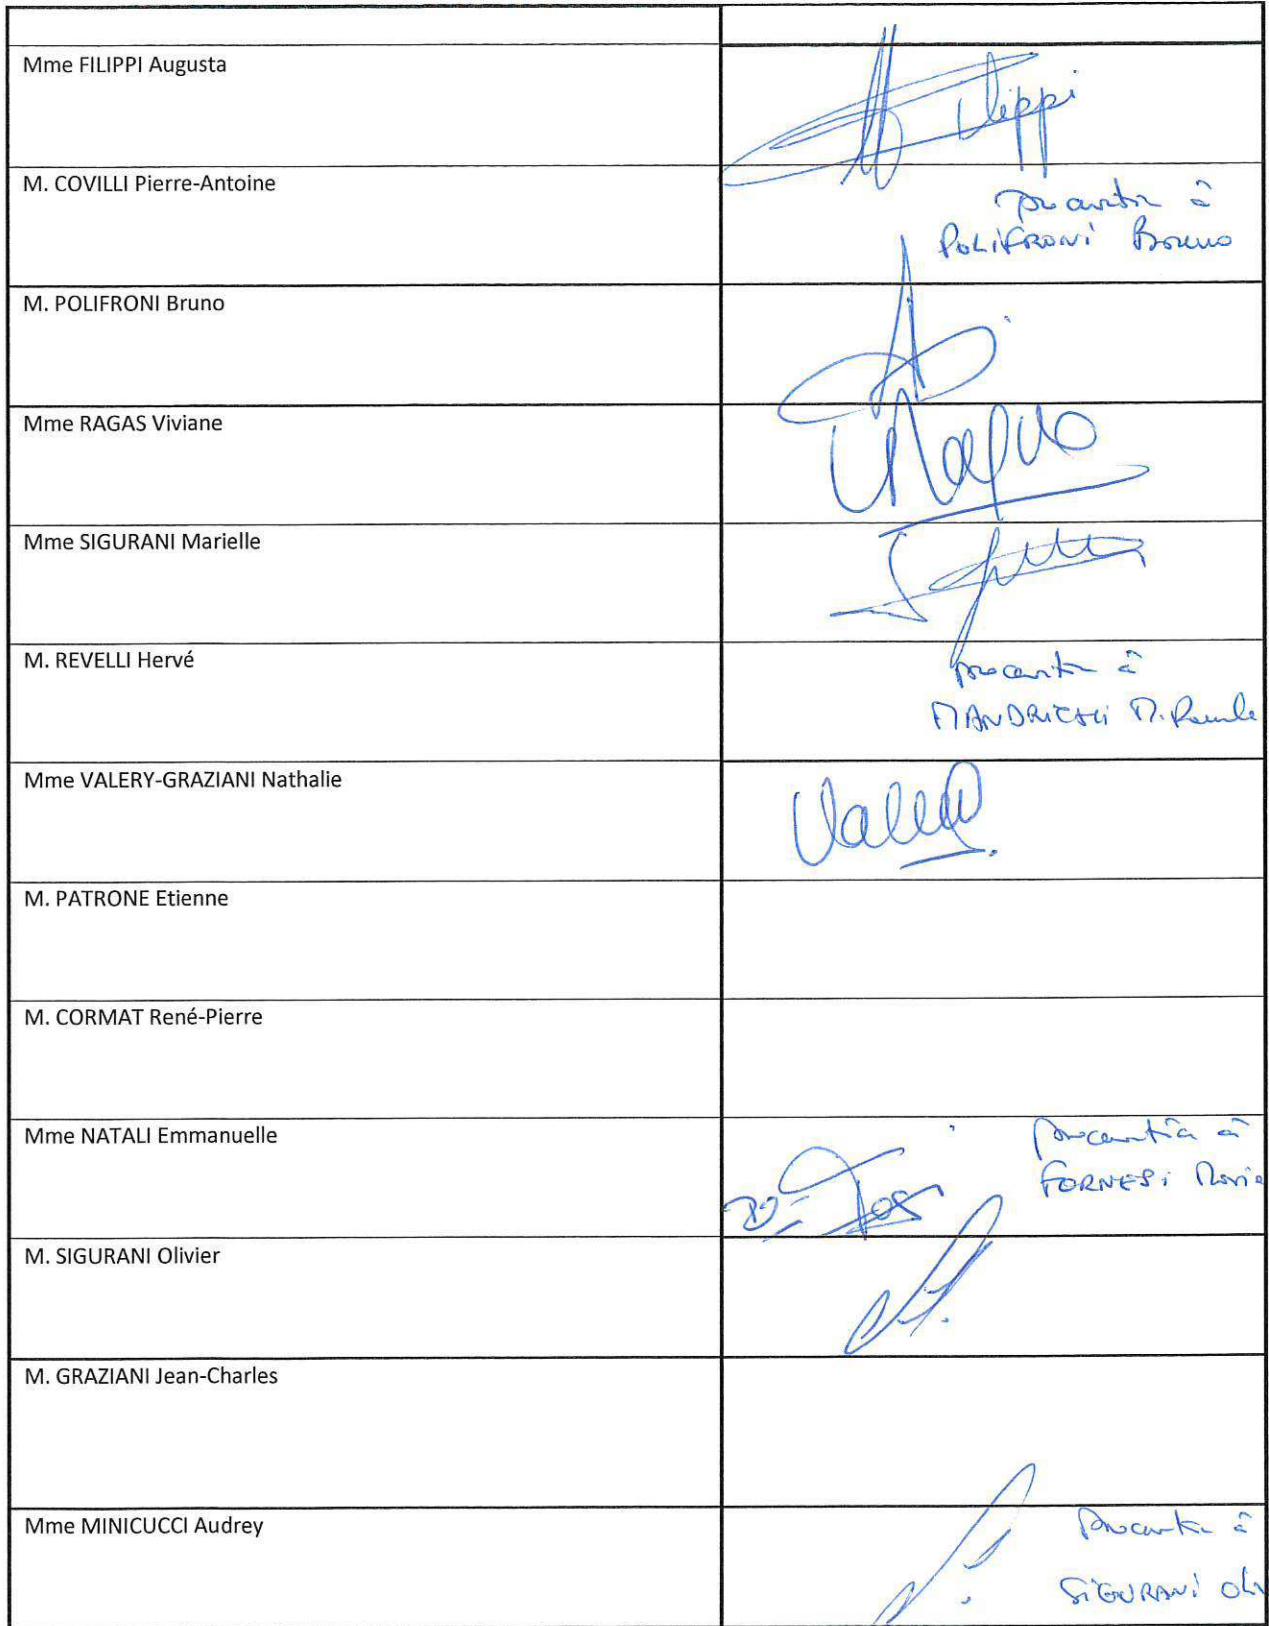 Mme FILIPPI Augusta
Filippi
M. COVILLI Pierre-Antoine
procuration à
POLIFRONI Bruno
M. POLIFRONI Bruno
Mme RAGAS Viviane
Mme SIGURANI Marielle
M. REVELLI Hervé
procuration à
MANDRICHI M. Paule
Mme VALERY-GRAZIANI Nathalie
M. PATRONE Etienne
M. CORMAT René-Pierre
Mme NATALI Emmanuelle
procuration à
FORNESI Marie
M. SIGURANI Olivier
M. GRAZIANI Jean-Charles
Mme MINICUCCI Audrey
procuration à
SIGURANI Oli